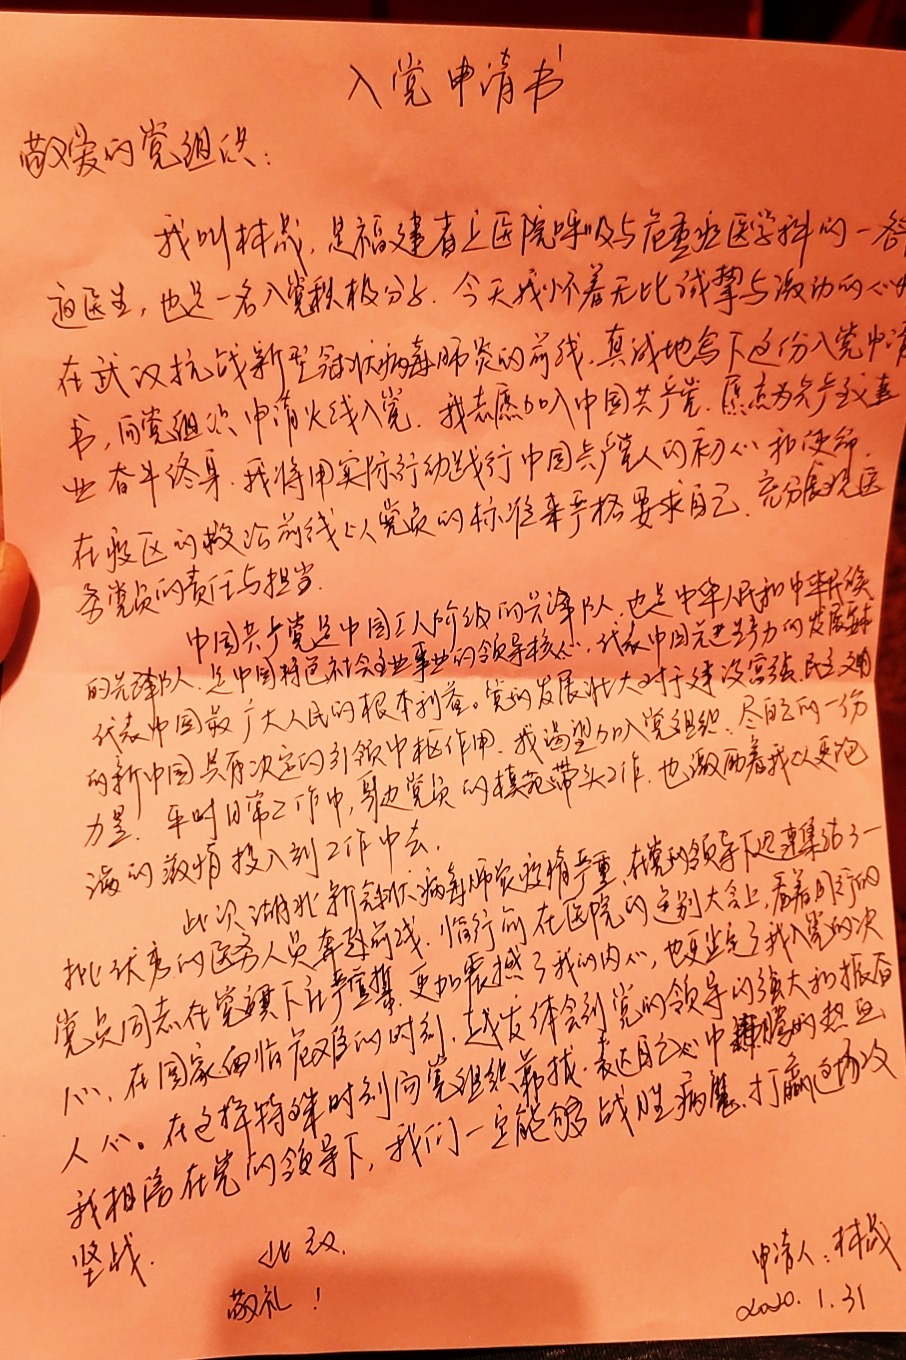 入党申请书
敬爱的党组织：
我叫林晟，是福建省立医院呼吸与危重症医学科的一名普
通医生，也是一名入党积极分子．今天我怀着无比诚挚与激动的心
在武汉抗战新型冠状病毒肺炎的前线．真诚地写下这份入党申请
书，向党组织申请火线入党．我志愿加入中国共产党．愿意为共产主义事
业奋斗终身．我将用实际行动践行中国共产党人的初心和使命．
在疫区的救治前线以党员的标准来严格要求自己．充分展现医
务党员的责任与担当．
中国共产党是中国工人阶级的先锋队．也是中华人民和中华民族
的先锋队．是中国特色社会主业事业的领导核心．代表中国先进生产力的发展要求
代表中国最广大人民的根本利益。党的发展壮大对于建设富强．民主文明
的新中国具有决定的引领中枢作用．我渴望加入党组织．尽自己的一份
力量．平时日常工作中，身边党员的模范带头工作．也激励着我以更饱
满的激情投入到工作中去．
此次湖北新冠状病毒肺炎疫情严重．在党的领导下迅速集结了一
批优秀的医务人员奔赴前线．临行前在医院的送别大会上．看着同行的
党员同志在党旗下庄严宣誓．更加震撼了我的内心，也更坚定了我入党的决
心．在国家面临危难的时刻．越发体会到党的领导的强大和振奋
人心。在这样特殊时刻向党组织靠找．表达自己心中沸腾的热血
我相信在党的领导下，我们一定能够战胜病魔．打赢这场攻
坚战．
此致．
敬礼！
申请人：林晟
2020．1．31